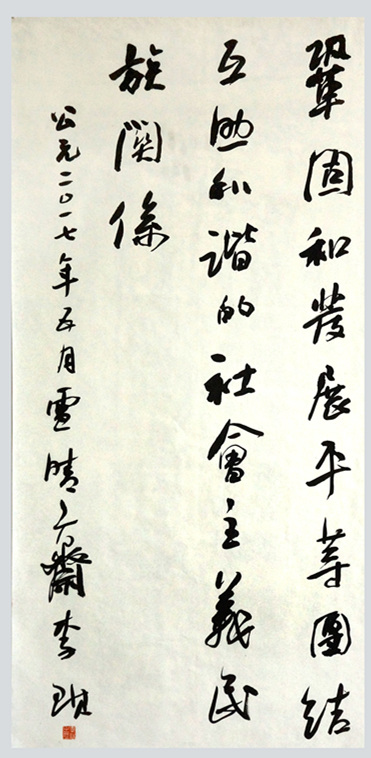 鞏固和發展平等團結
互助和諧的社會主義民
族關係
公元二〇一七年五月雪晴齋李